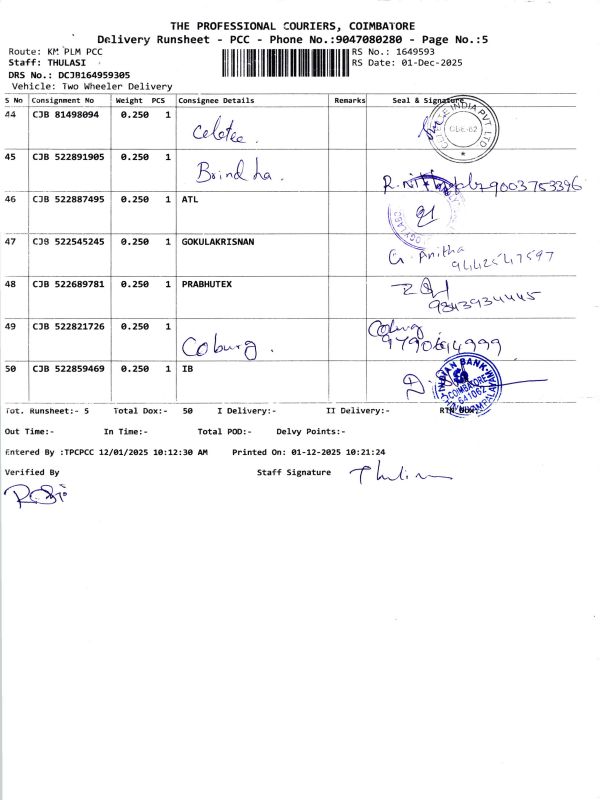 THE PROFESSIONAL COURIERS, COIMBATORE
Delivery Runsheet - PCC - Phone No.:9047080280 - Page No.:5
Route: KM PLM PCC
RS No.: 1649593
Staff: THULASI
RS Date: 01-Dec-2025
DRS No.: DCJB164959305
Vehicle: Two Wheeler Delivery
S No Consignment No Weight PCS Consignee Details Remarks Seal & Signature
44 CJB 81498094 0.250 1
INDIA PVT LTD
CBE-62
45 CJB 522891905 0.250 1 Brindha. 9003753396
46 CJB 522887495 0.250 1 ATL 91
47 CJB 522545245 0.250 1 GOKULAKRISNAN G. Anitha
9442547597
48 CJB 522689781 0.250 1 PRABHUTEX
9843934445
49 CJB 522821726 0.250 1 Coburg. Coburg
9790694999
50 CJB 522859469 0.250 1 IB
INDIAN BANK
COIMBATORE
641062
Tot. Runsheet:- 5 Total Dox:- 50 I Delivery:- II Delivery:- RTN DOX:-
Out Time:- In Time:- Total POD:- Delvy Points:-
Entered By :TPCPCC 12/01/2025 10:12:30 AM Printed On: 01-12-2025 10:21:24
Verified By Staff Signature